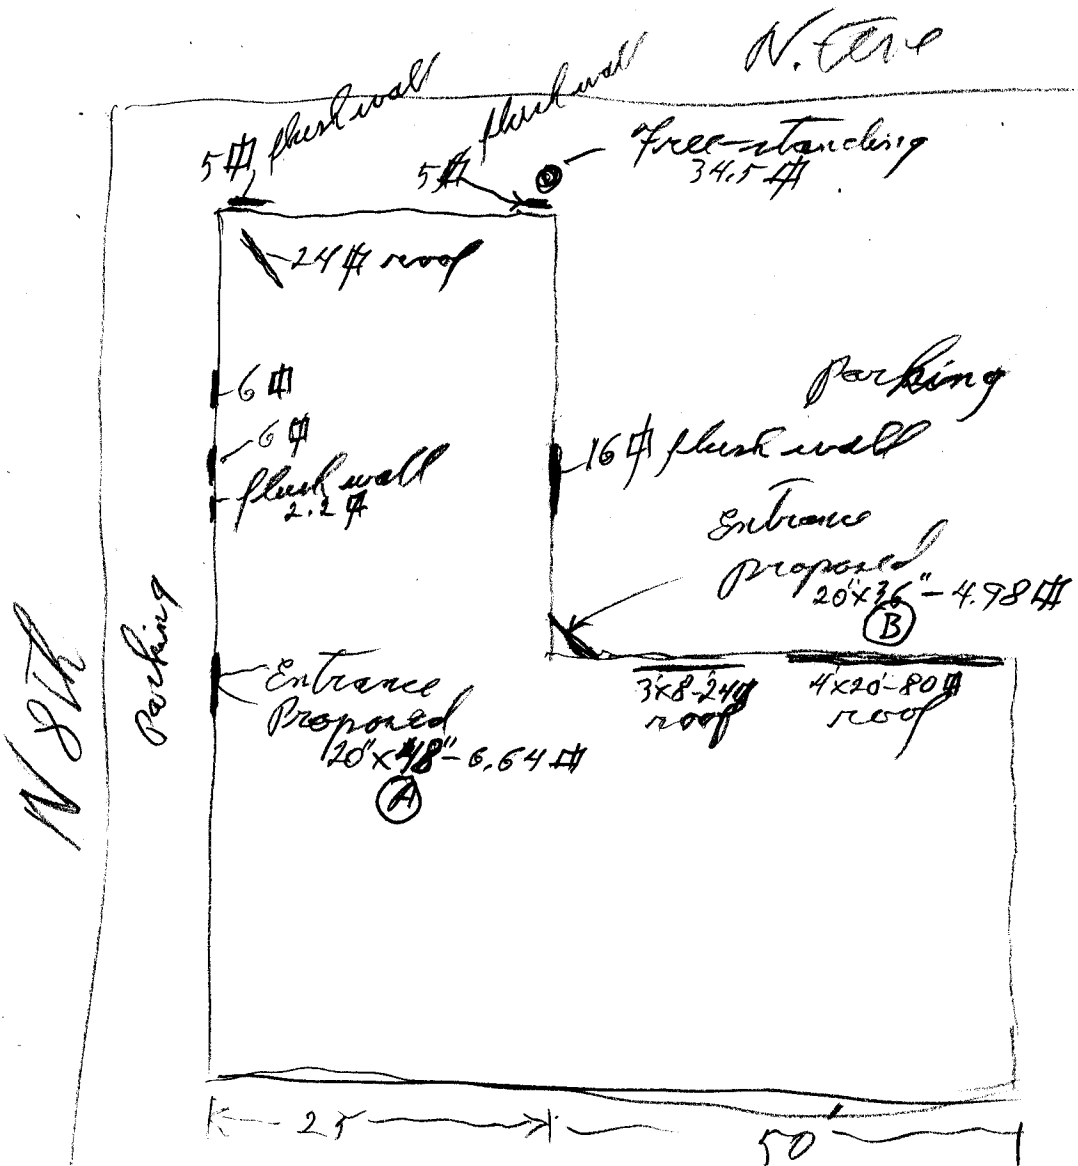 N. Ave
flush wall
flush wall
5⌗
5⌗
Free-standing
34.5 ⌗
24⌗ roof
6⌗
6⌗
flush wall
2.2⌗
Parking
16⌗ flush wall
Entrance
proposed
20"x36"-4.98⌗
B
N 8th
Parking
Entrance
Proposed
20"x48"-6.64⌗
A
3'x8'-24⌗
roof
4'x20'-80⌗
roof
25
50'